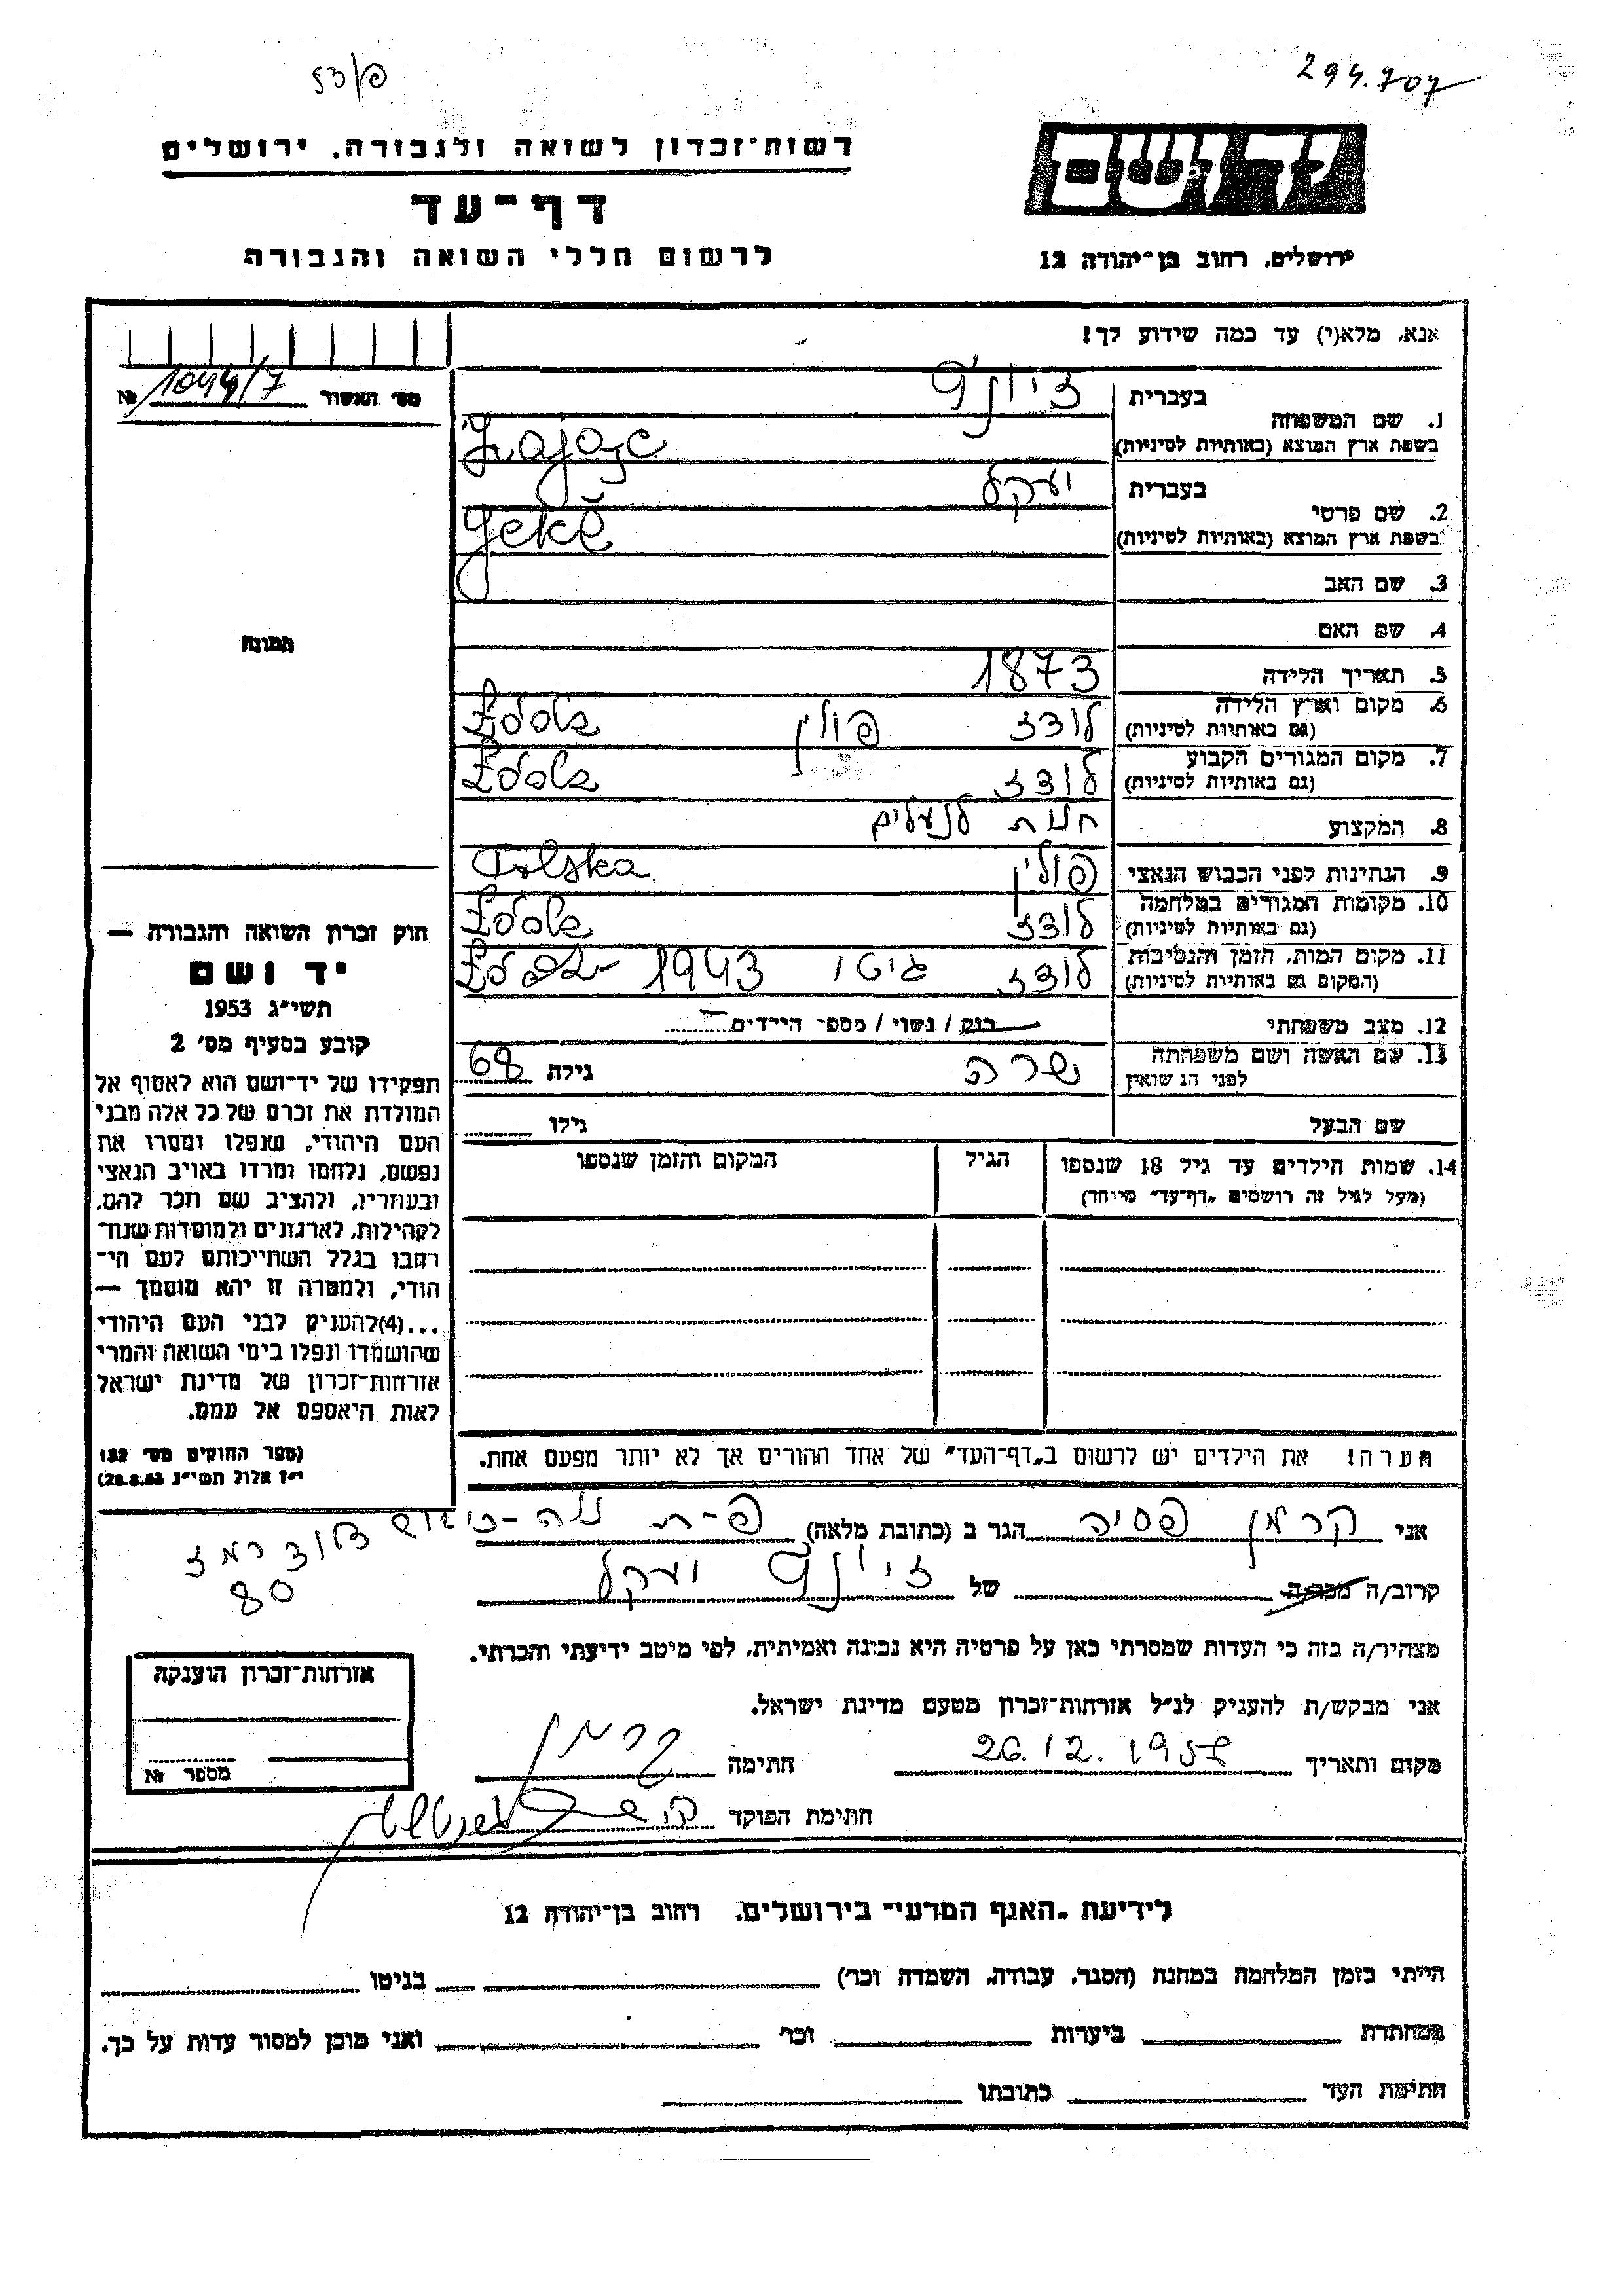 53/פ
294.707
רשות-זכרון לשואה ולגבורה, ירושלים
דף-עד
לרשום חללי השואה והגבורה
יד ושם
ירושלים, רחוב בן-יהודה 12
אנא, מלא(י) עד כמה שידוע לך!
מס' האשור 1044/7 №
תמונה
חוק זכרון השואה והגבורה —
יד ושם
תשי"ג 1953
קובע בסעיף מס' 2
תפקידו של יד-ושם הוא לאסוף אל
המולדת את זכרם של כל אלה מבני
העם היהודי, שנפלו ומסרו את
נפשם, נלחמו ומרדו באויב הנאצי
ובעוזריו, ולהציב שם וזכר להם,
לקהילות, לארגונים ולמוסדות שנח-
רבו בגלל השתייכותם לעם הי-
הודי, ולמטרה זו יהא מוסמך —
...(4)להעניק לבני העם היהודי
שהושמדו ונפלו בימי השואה והמרי
אזרחות-זכרון של מדינת ישראל
לאות היאספם אל עמם.
(ספר החוקים מס' 132
י"ז אלול תשי"ג 28.8.53)
1. שם המשפחה
בעברית
בשפת ארץ המוצא (באותיות לטיניות) Zająjc
2. שם פרטי
בעברית יעקל
בשפת ארץ המוצא (באותיות לטיניות)
3. שם האב
4. שם האם
5. תאריך הלידה 1873
6. מקום וארץ הלידה לודז פולין
(גם באותיות לטיניות)
7. מקום המגורים הקבוע לודז
(גם באותיות לטיניות)
8. המקצוע חנות לנעלים
9. הנתינות לפני הכבוש הנאצי פולין Polska
10. מקומות המגורים במלחמה לודז
(גם באותיות לטיניות)
11. מקום המות, הזמן והנסיבות לודז גיטו 1943
(המקום גם באותיות לטיניות)
12. מצב משפחתי רווק / נשוי / מספר הילדים
13. שם האשה ושם משפחתה שרה גילה 68
לפני הנישואין
שם הבעל גילו
14. שמות הילדים עד גיל 18 שנספו הגיל המקום והזמן שנספו
(מעל לגיל זה רושמים "דף-עד" מיוחד)
הערה! את הילדים יש לרשום ב"דף-העד" של אחד ההורים אך לא יותר מפעם אחת.
אני קרמן פסיה הגר ב (כתובת מלאה) פ-ת דוד רמז
80
קרוב/ה מכר/ה של יעקל
מצהיר/ה בזה כי העדות שמסרתי כאן על פרטיה היא נכונה ואמיתית, לפי מיטב ידיעתי והכרתי.
אני מבקש/ת להעניק לנ"ל אזרחות-זכרון מטעם מדינת ישראל.
מקום ותאריך 26.12.195 חתימה קרמן
חתימת הפוקד
אזרחות-זכרון הוענקה
מספר №
לידיעת "האגף המדעי" בירושלים, רחוב בן-יהודה 12
הייתי בזמן המלחמה במחנה (הסגר, עבודה, השמדה וכו') בגיטו
במחתרת ביערות וכו' ואני מוכן למסור עדות על כך.
חתימת העד כתובתו